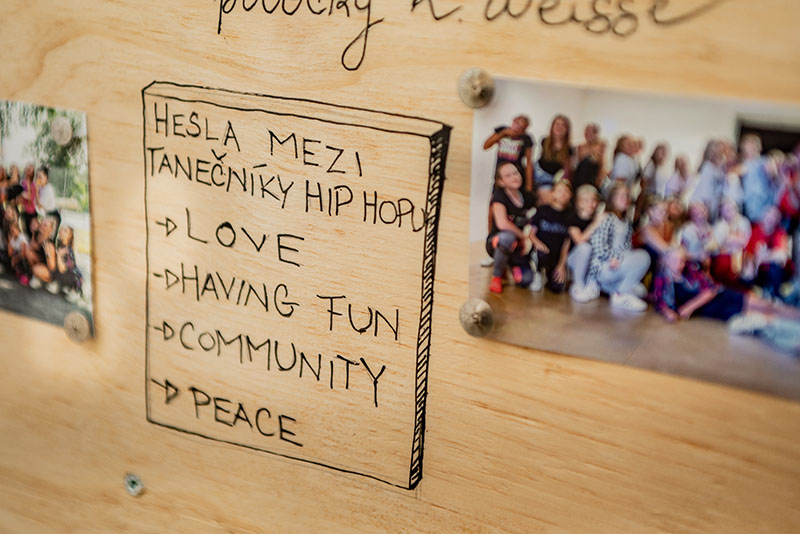 Weisse
HESLA MEZI
TANEČNÍKY HIP HOPU
→ LOVE
→ HAVING FUN
→ COMMUNITY
→ PEACE